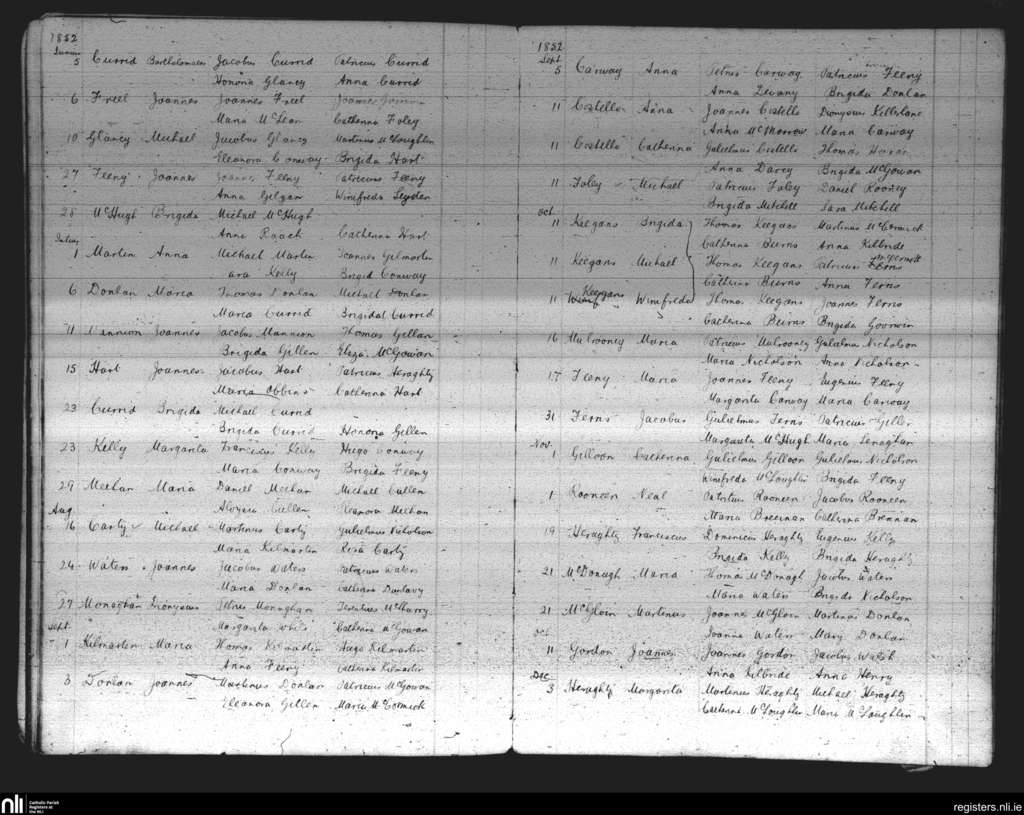 1852
5 Currid Bartholomaeus Jacobus Currid Patricius Currid
Honoria Glancy Anna Currid
6 Freel Joannes Joannes Freel Joannes
Maria McLean Catherina Foley
10 Glancy Michael Jacobus Glancy Martinus McLoughlin
Eleanora Conway Brigida Hart
27 Feeny Joannes Joannes Feeny Patricius Feeny
Anna Gilgan Winifreda Leyden
28 McHugh Brigida Michael McHugh
Anne Roach Catherina Hart
July
1 Marten Anna Michael Marten Joannes Gilmorten
Kelly Brigid Conway
6 Donlan Maria Thomas Donlan Michael Donlan
Maria Currid Brigidat Currid
11 Mannion Joannes Jacobus Mannion Thomas Gillan
Brigida Gillen Eliza McGowan
15 Hart Joannes Jacobus Hart Patricius Heraghty
Maria Obbins Catherina Hart
23 Currid Brigida Michael Currid
Brigida Currid Honora Gillen
23 Kelly Margarita Franciscus Kelly Hugo Conway
Maria Conway Brigida Feeny
29 Meehan Maria Daniel Meehan Michael Cullen
Aloysia Cullen Eleanora Meehan
Aug
16 Carty Michael Martinus Carty Gulielmus Nicholson
Maria Kilmartin Rosa Carty
24 Waters Joannes Jacobus Waters Patricius Waters
Maria Donlan Catherina Dunlavy
27 Monaghan Dionysius Petrus Monaghan Terentius McSharry
Margarita White Catherina McGowan
Sept
1 Kilmarten Maria Thomas Kilmarten Hugo Kilmarten
Anna Feeny Catherina Kilmarten
3 Donlan Joannes Martinus Donlan Patricius McGowan
Eleanora Gillen Maria McCormick
1852
Sept
5 Carway Anna Petrus Carway Patricius Feeny
Anna Devany Brigida Donlan
11 Costello Anna Joannes Costello Dionysius Killerlane
Anna McMorrow Maria Carway
11 Costello Catherina Gulielmus Costello Thomas Horan
Anna Darcy Brigida McGowan
11 Foley Michael Patricius Foley Daniel Rooney
Brigida Mitchell Sara Mitchell
Oct
11 Keegans Brigida Thomas Keegans Martinus McCormick
Catherina Beirns Anna Kilbride
11 Keegans Michael Thomas Keegans Patricius McDermott Ferns
Catherina Beirns Anna Ferns
11 Keegans Winifreda Thomas Keegans Joannes Ferns
Catherina Beirns Brigida Goonwin
16 Mulrooney Maria Patricius Mulrooney Gulielmus Nicholson
Maria Nicholson Anne Nicholson
17 Feeny Maria Joannes Feeny Eugenius Feeny
Margarita Carway Maria Carway
31 Ferns Jacobus Gulielmus Ferns Patricius Giller
Margarita McHugh Maria Lenaghan
Nov.
1 Gilloon Catherina Gulielmus Gilloon Gulielmus Nicholson
Winifreda McLoughlin Brigida Feeny
1 Rooneen Neal Patritius Rooneen Jacobus Rooneen
Maria Breenan Catherina Brennan
19 Heraghty Franciscus Dominicus Heraghty Eugenius Kelly
Brigida Kelly Brigida Heraghty
21 McDonagh Maria Thomas McDonagh Jacobus Waters
Maria Waters Brigida Nicholson
21 McGloin Martinus Joannes McGloin Martinus Donlan
Joanne Waters Mary Donlan
Oct
11 Gordon Joannes Joannes Gordon Jacobus Walsh
Anna Kilbride Anne Henry
Dec
3 Heraghty Margarita Martinus Heraghty Michael Heraghty
Catherina McLoughlin Maria McLaughlin
nli Catholic Parish
Registers at
the NLI
registers.nli.ie